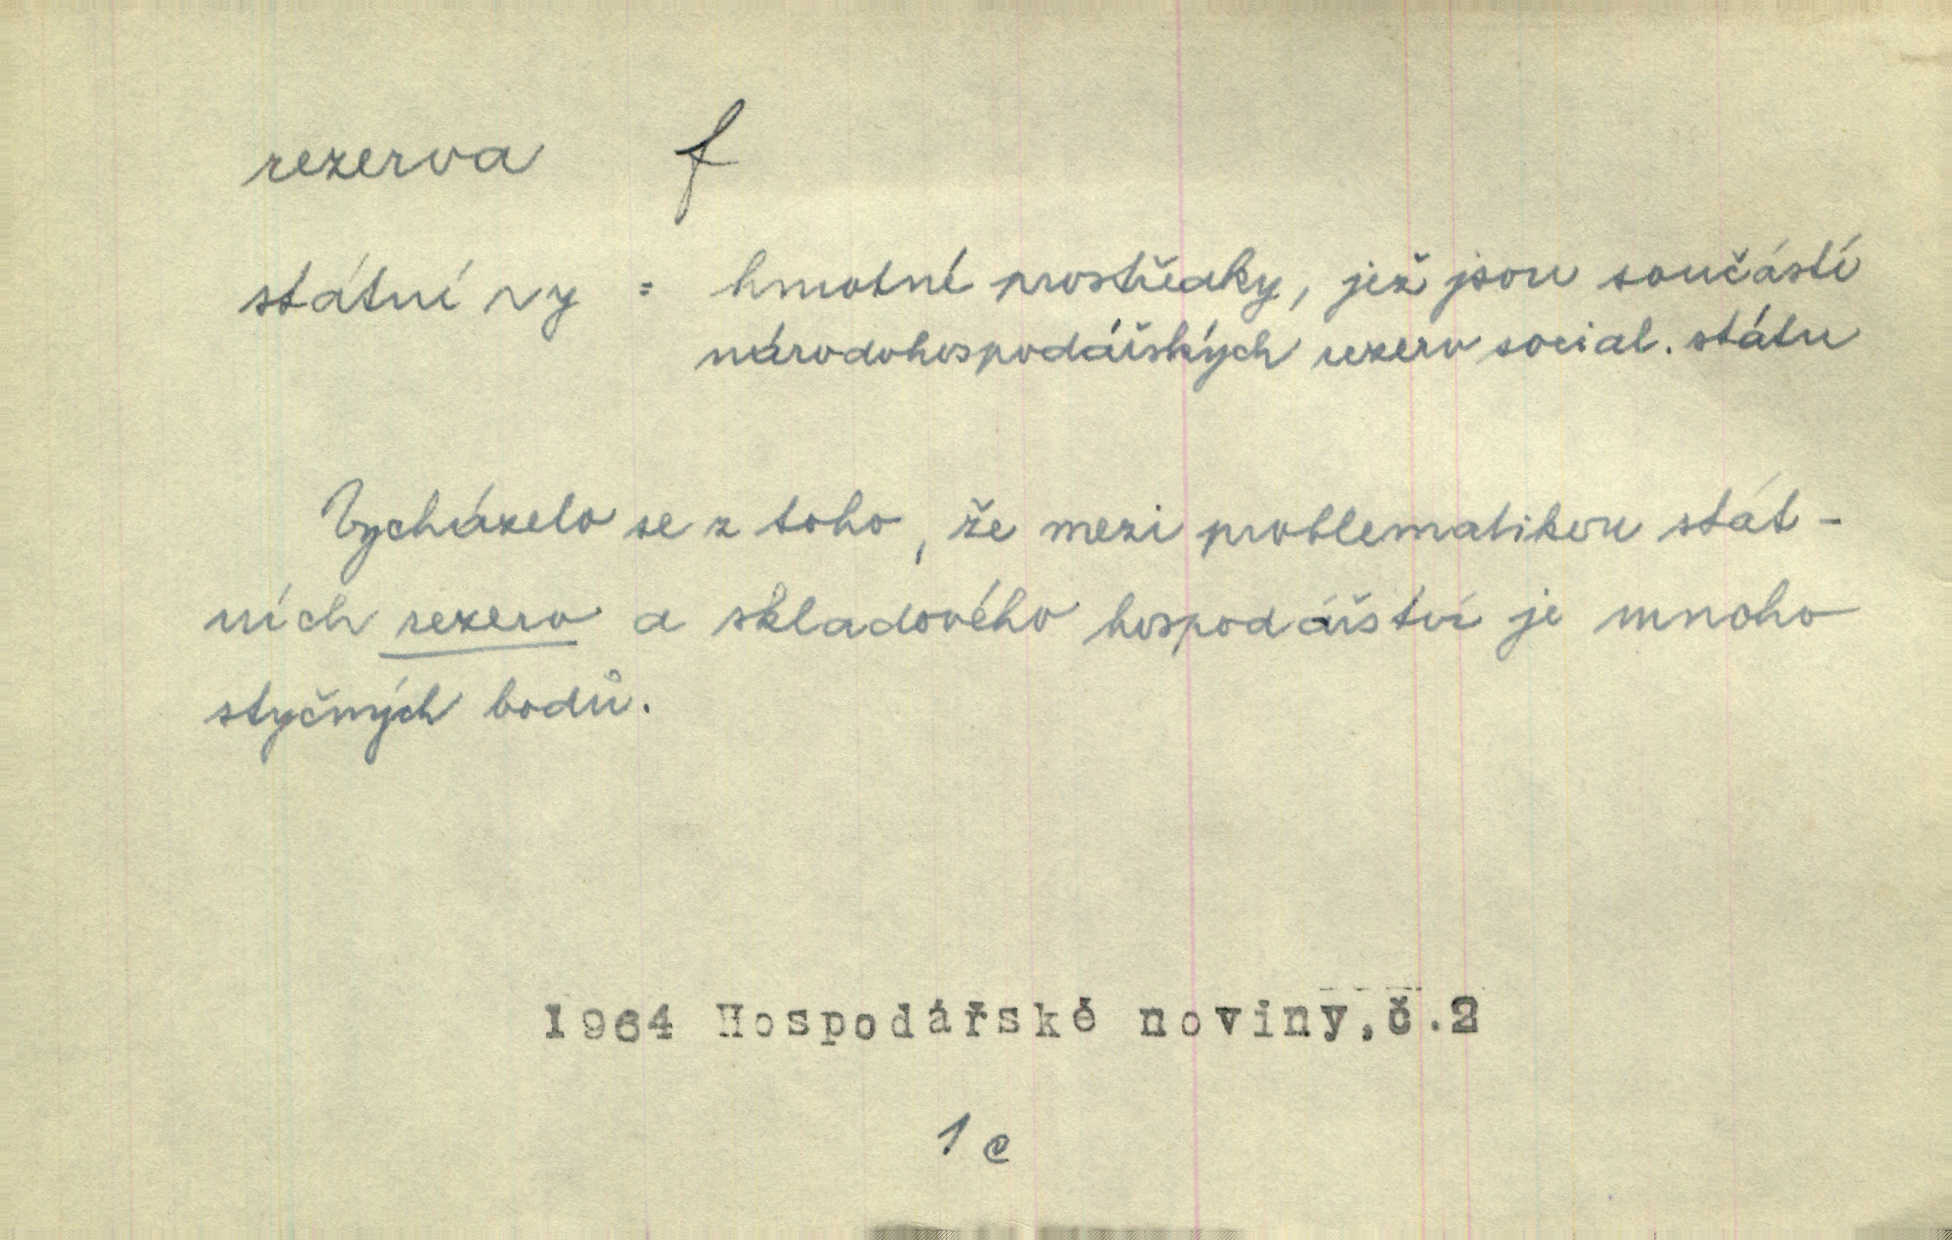 rezerva f
státní r-y = hmotné prostředky, jež jsou součástí
národohospodářských rezerv social. státu
Vycházelo se z toho, že mezi problematikou stát-
ních rezerv a skladového hospodářství je mnoho
styčných bodů.
1964 Hospodářské noviny,č.2
1 c